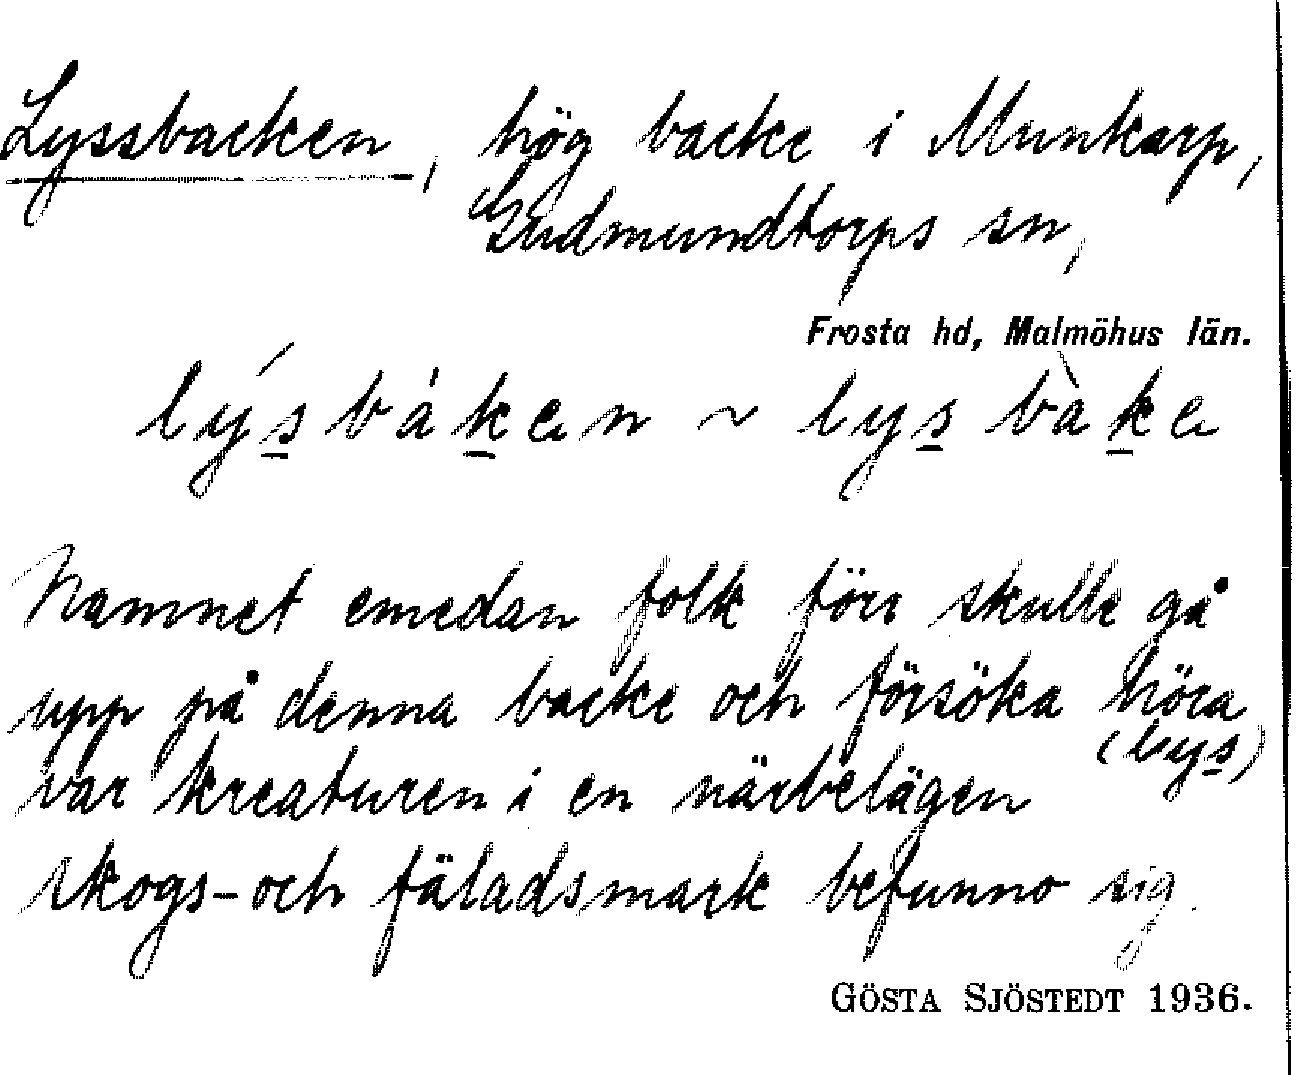 Lyssbacken, hög backe i Munkarp,
Gudmundtorps sn,
Frosta hd, Malmöhus län.
lýsbáken ~ lysbàke
Namnet emedan folk förr skulle gå
upp på denna backe och försöka höra
(lys)
var kreaturen i en närbelägen
skogs- och fäladsmark befunno sig.
GÖSTA SJÖSTEDT 1936.